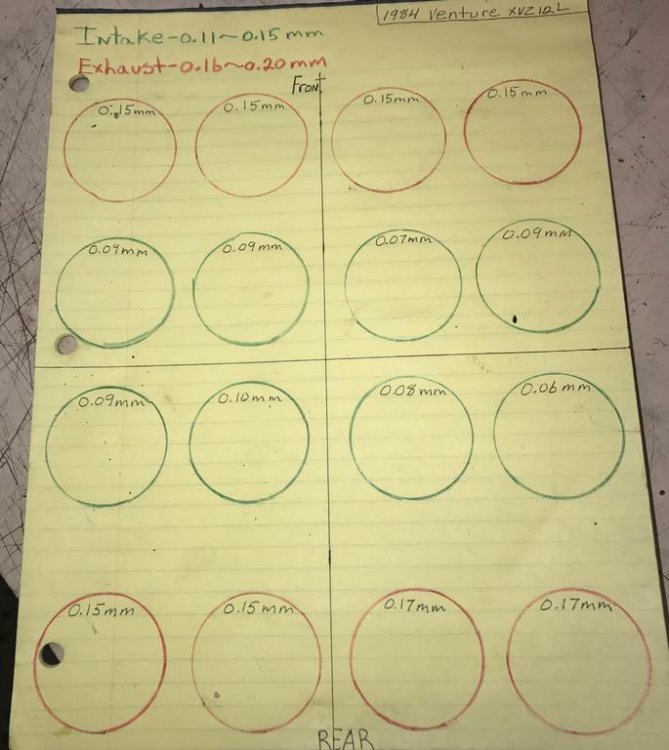 1984 Venture XVZ12L
Intake-0.11~0.15mm
Exhaust-0.16~0.20mm
Front
0.15mm 0.15mm 0.15mm 0.15mm
0.09mm 0.09mm 0.07mm 0.09mm
0.09mm 0.10mm 0.08mm 0.06mm
0.15mm 0.15mm 0.17mm 0.17mm
REAR